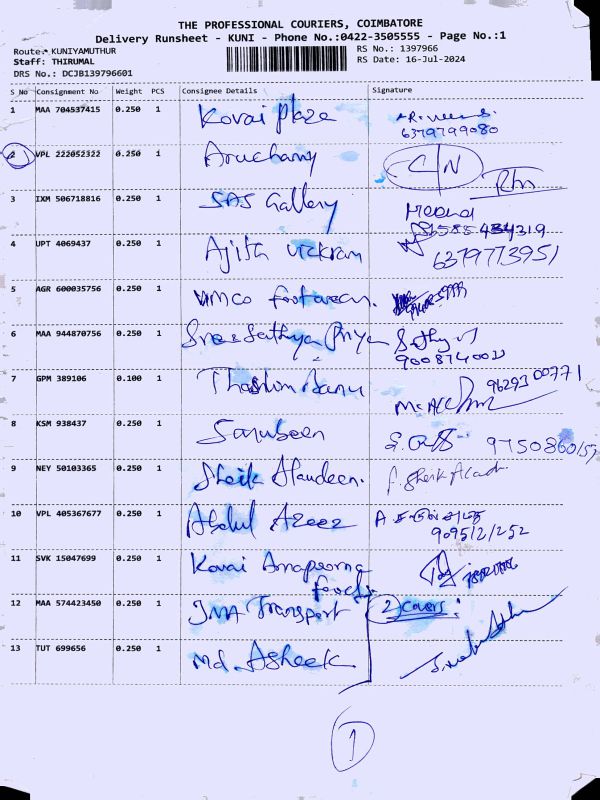 THE PROFESSIONAL COURIERS, COIMBATORE
Delivery Runsheet - KUNI - Phone No.:0422-3505555 - Page No.:1
Route: KUNIYAMUTHUR RS No.: 1397966
Staff: THIRUMAL RS Date: 16-Jul-2024
DRS No.: DCJB139796601
S No Consignment No Weight PCS Consignee Details Signature
1 MAA 704537415 0.250 1 Kovai Plaza
6379799080
2 VPL 222052322 0.250 1 Aruchamy C/N
3 IXM 506718816 0.250 1 SAS Gallery
4 UPT 4069437 0.250 1 Ajith Vickram 6379773951
5 AGR 600035756 0.250 1 VMCO footwear.
6 MAA 944870756 0.250 1 Sree Sathya Priya Sathya
7 GPM 389106 0.100 1 Banu 9629300771
8 KSM 938437 0.250 1 9750860157
9 NEY 50103365 0.250 1 Sheik Alaudeen.
10 VPL 405367677 0.250 1 Abdul Azeez
9095121252
11 SVK 15047699 0.250 1 Kovai Annapoorna
foods
12 MAA 574423450 0.250 1 JMA Transport 2 covers
13 TUT 699656 0.250 1 Md. Asheek
1